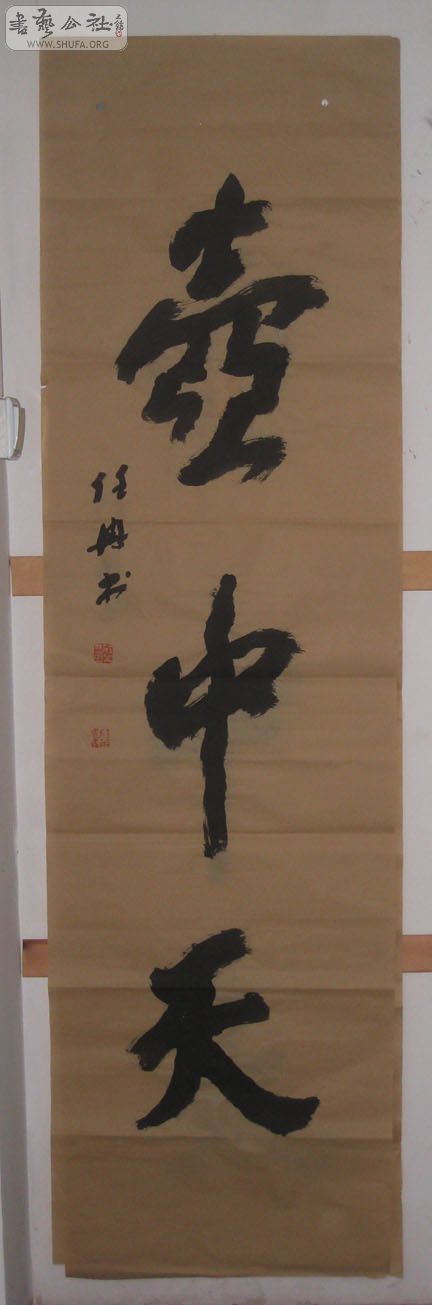 書藝公社
WWW.SHUFA.ORG
壺中天
任冉书